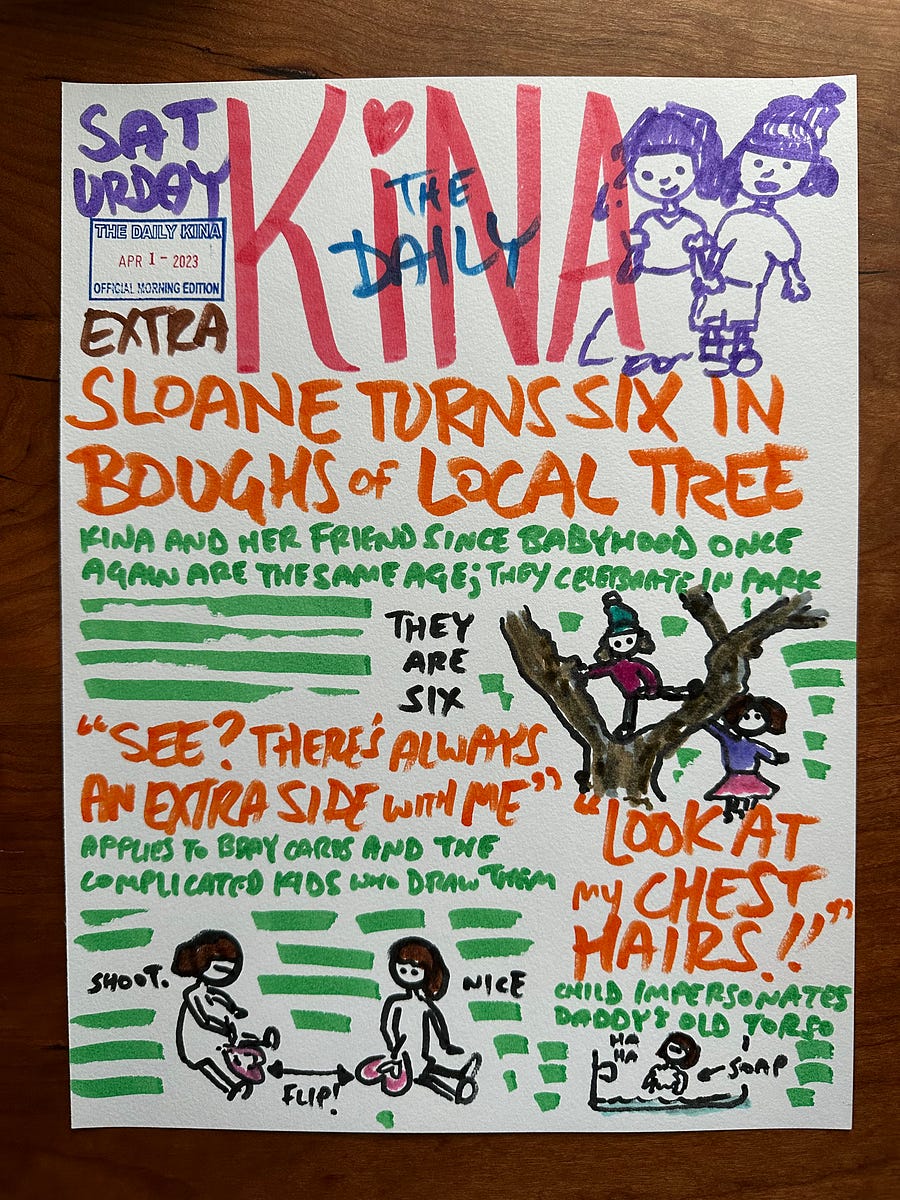 SAT
URDAY
THE DAILY KINA
APR 1 - 2023
OFFICIAL MORNING EDITION
EXTRA
KiNA
THE
DAILY
SLOANE TURNS SIX IN
BOUGHS OF LOCAL TREE
KINA AND HER FRIEND SINCE BABYHOOD ONCE
AGAIN ARE THE SAME AGE; THEY CELEBRATE IN PARK
THEY
ARE
SIX
"SEE? THERE'S ALWAYS
AN EXTRA SIDE WITH ME"
APPLIES TO BDAY CARDS AND THE
COMPLICATED KIDS WHO DRAW THEM
SHOOT.
NICE
FLIP!
"LOOK AT
MY CHEST
HAIRS!!"
CHILD IMPERSONATES
DADDY'S OLD TORSO
HA
HA
SOAP